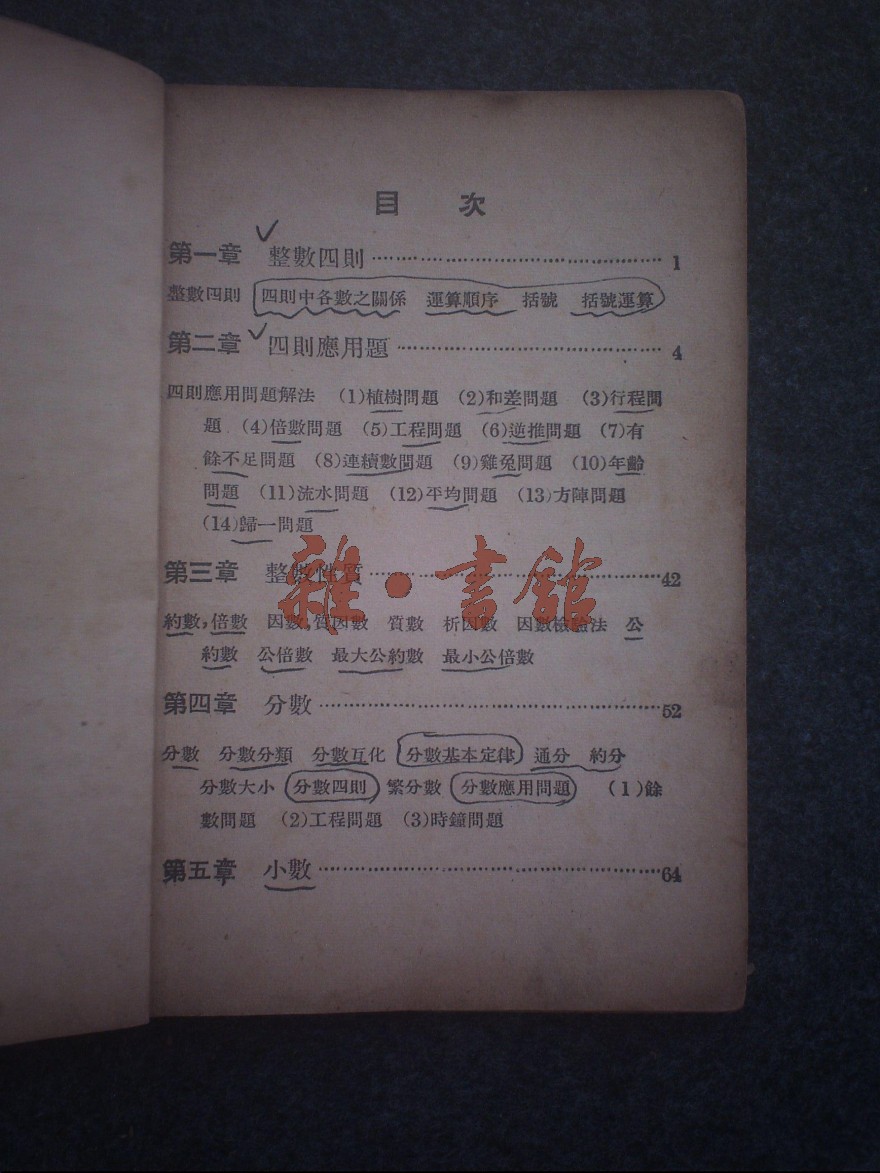 目 次
第一章 整數四則……………………………………1
整數四則 四則中各數之關係 運算順序 括號 括號運算
第二章 四則應用題…………………………………4
四則應用問題解法 (1)植樹問題 (2)和差問題 (3)行程問
題 (4)倍數問題 (5)工程問題 (6)逆推問題 (7)有
餘不足問題 (8)連續數問題 (9)雞兔問題 (10)年齡
問題 (11)流水問題 (12)平均問題 (13)方陣問題
(14)歸一問題
第三章 整數性質……………………………………42
雜·書館
約數,倍數 因數,質因數 質數 析因數 因數檢驗法 公
約數 公倍數 最大公約數 最小公倍數
第四章 分數…………………………………………52
分數 分數分類 分數互化 分數基本定律 通分 約分
分數大小 分數四則 繁分數 分數應用問題 (1)餘
數問題 (2)工程問題 (3)時鐘問題
第五章 小數…………………………………………64